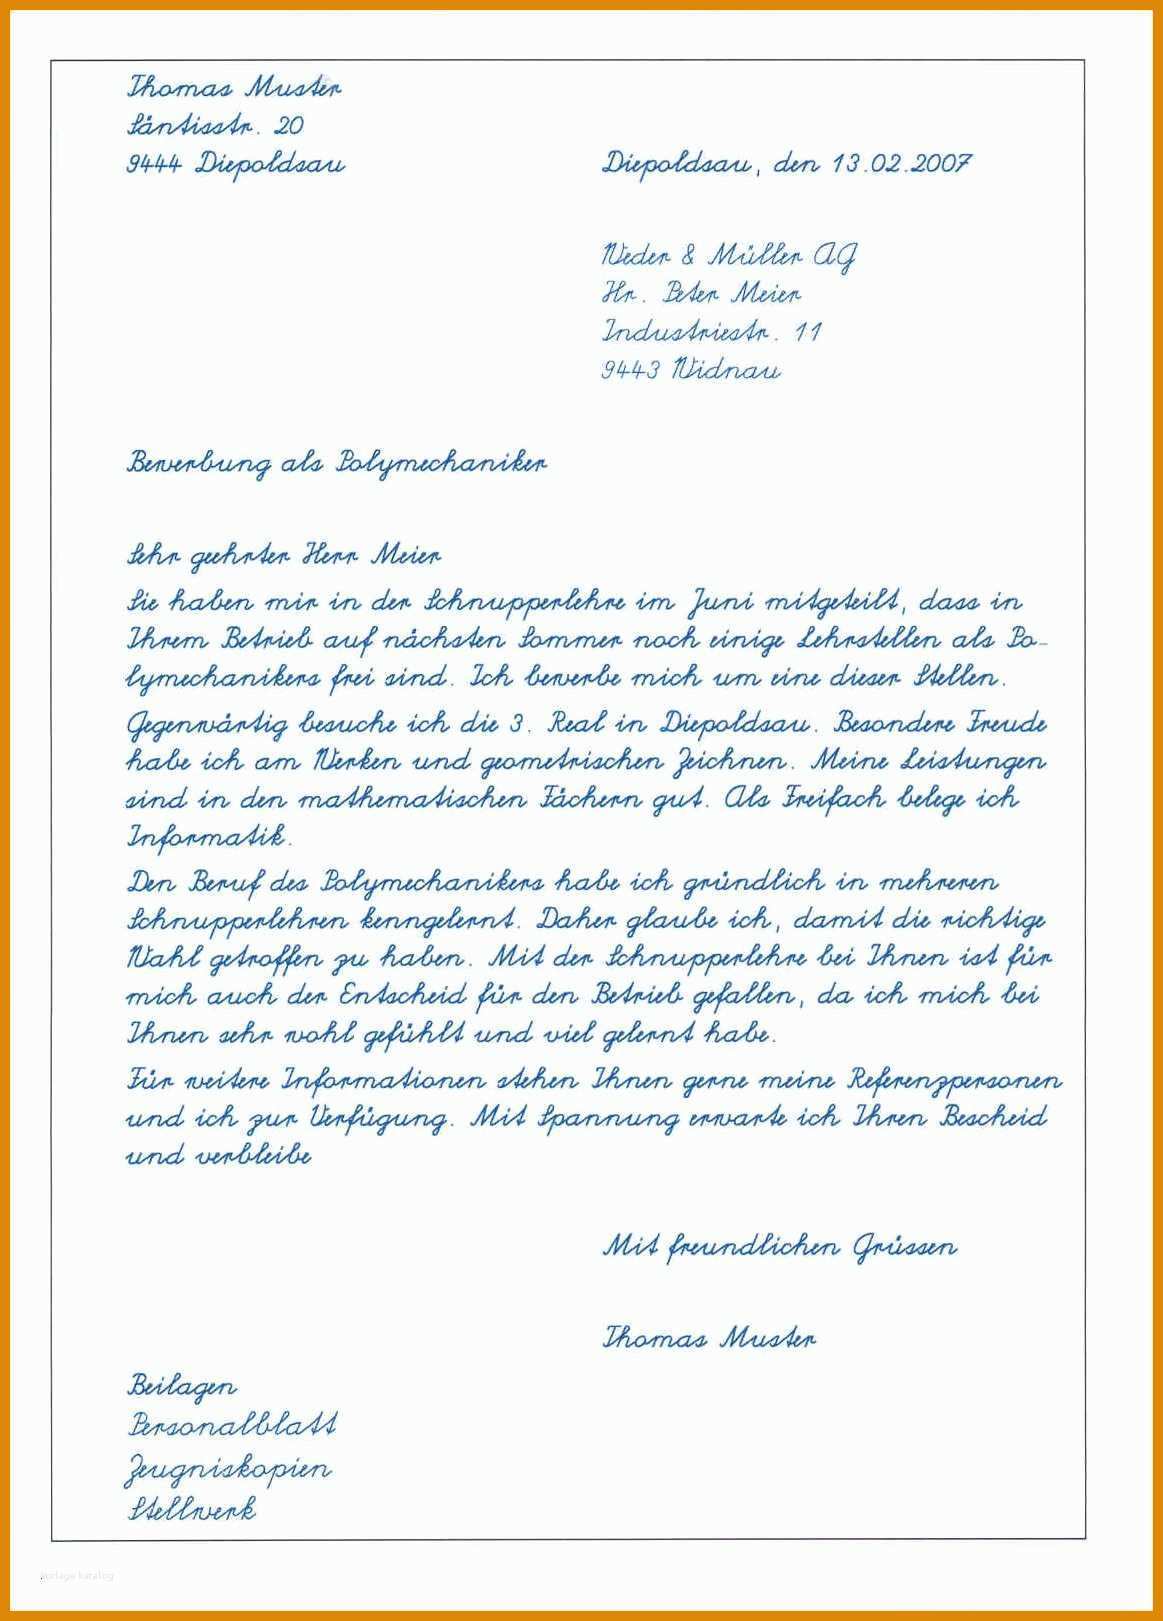 Thomas Muster
Säntisstr. 20
9444 Diepoldsau
Diepoldsau, den 13.02.2007
Weder & Müller AG
Hr. Peter Meier
Industriestr. 11
9443 Widnau
Bewerbung als Polymechaniker
Sehr geehrter Herr Meier
Sie haben mir in der Schnupperlehre im Juni mitgeteilt, dass in
Ihrem Betrieb auf nächsten Sommer noch einige Lehrstellen als Po-
lymechanikers frei sind. Ich bewerbe mich um eine dieser Stellen.
Gegenwärtig besuche ich die 3. Real in Diepoldsau. Besondere Freude
habe ich am Werken und geometrischen Zeichnen. Meine Leistungen
sind in den mathematischen Fächern gut. Als Freifach belege ich
Informatik.
Den Beruf des Polymechanikers habe ich gründlich in mehreren
Schnupperlehren kenngelernt. Daher glaube ich, damit die richtige
Wahl getroffen zu haben. Mit der Schnupperlehre bei Ihnen ist für
mich auch der Entscheid für den Betrieb gefallen, da ich mich bei
Ihnen sehr wohl gefühlt und viel gelernt habe.
Für weitere Informationen stehen Ihnen gerne meine Referenzpersonen
und ich zur Verfügung. Mit Spannung erwarte ich Ihren Bescheid
und verbleibe
Mit freundlichen Grüssen
Thomas Muster
Beilagen
Personalblatt
Zeugniskopien
Stellwerk
vorlage katalog